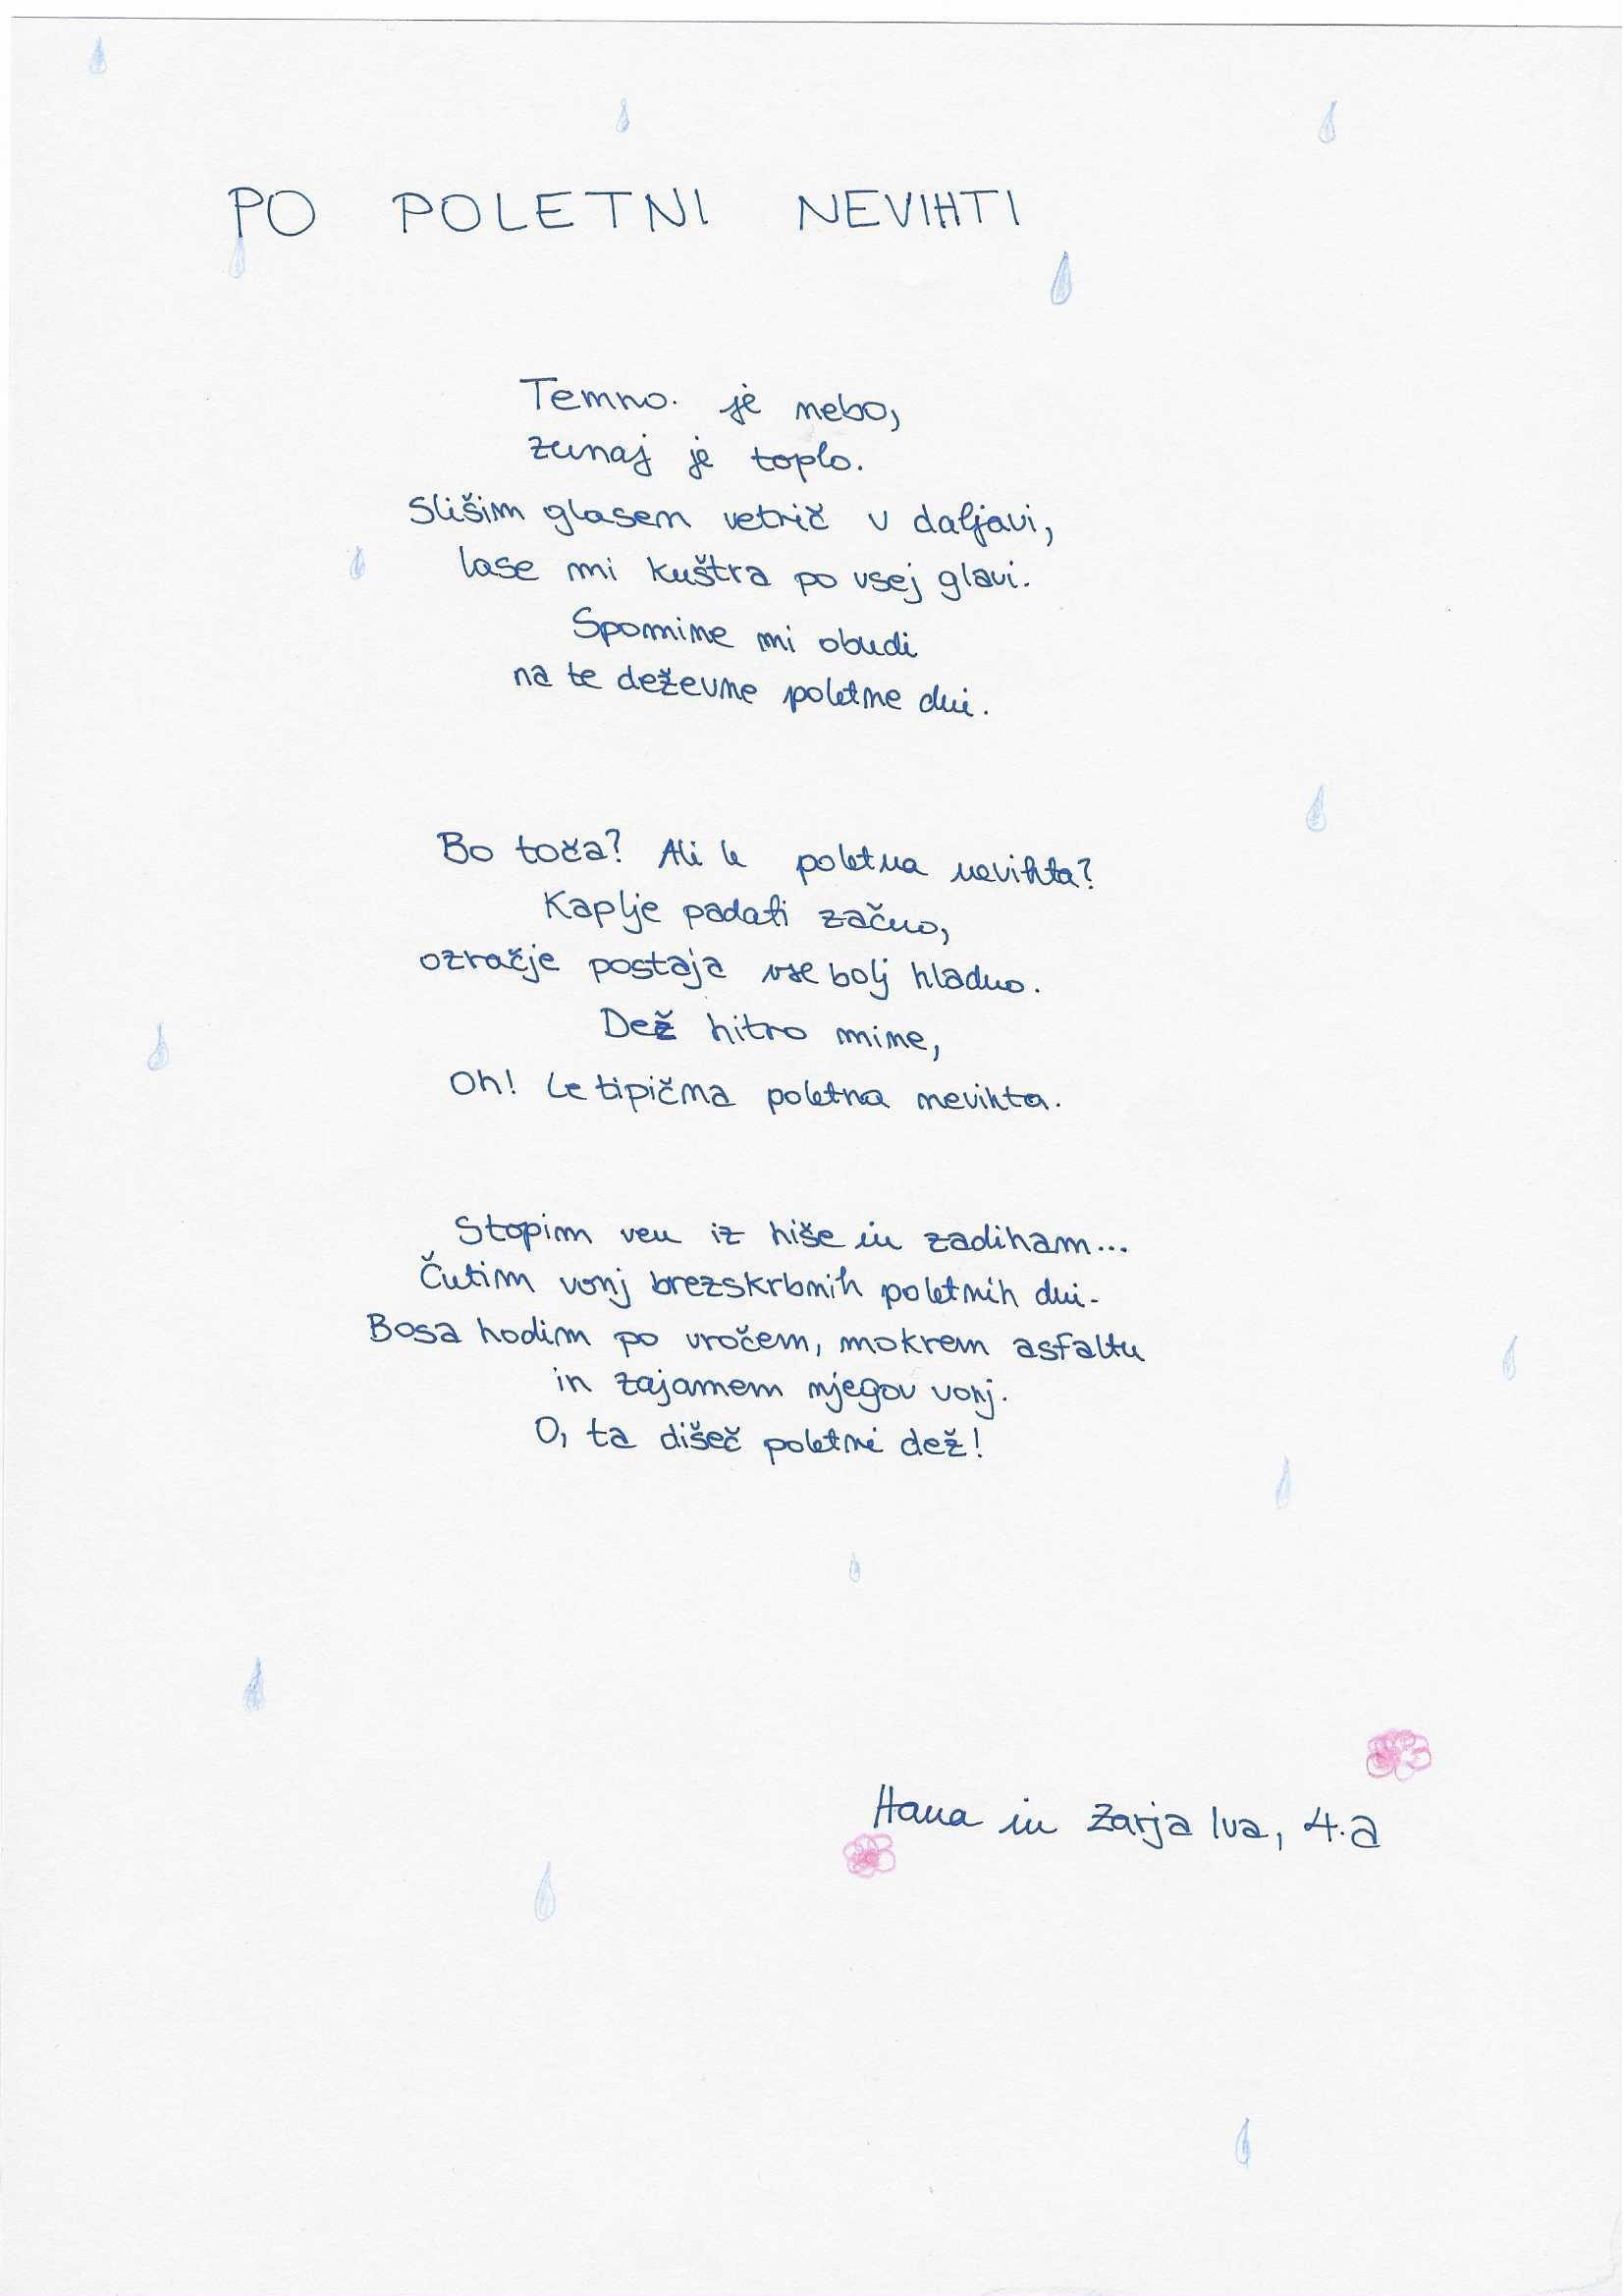 PO POLETNI NEVIHTI
Temno. je nebo,
zunaj je toplo.
Slišim glasen vetrič v daljavi,
lase mi kuštra po vsej glavi.
Spomine mi obudi
na te deževne poletne dni.
Bo toča? Ali le poletna nevihta?
Kaplje padati začno,
ozračje postaja vse bolj hladno.
Dež hitro mine,
Oh! Le tipična poletna nevihta.
Stopim ven iz hiše in zadiham...
Čutim vonj brezskrbnih poletnih dni.
Bosa hodim po vročem, mokrem asfaltu
in zajamem njegov vonj.
O, ta dišeč poletni dež!
Hana in Zarja Iva, 4.a